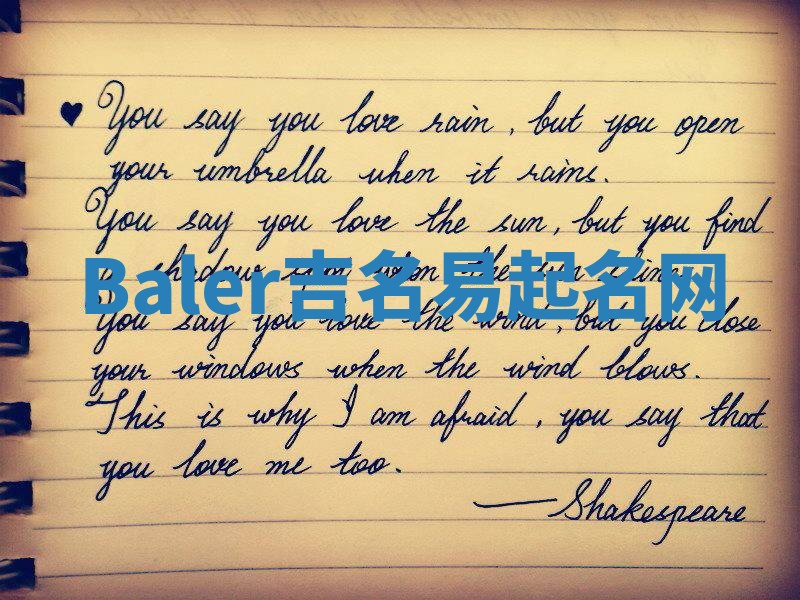 ♥ You say you love rain, but you open
your umbrella when it rains.
You say you love the sun, but you find
a shadow when the sun
Baler吉名易起名网
You say you love the wind, but you close
your windows when the wind blows.
This is why I am afraid, you say that
you love me too.
—Shakespeare